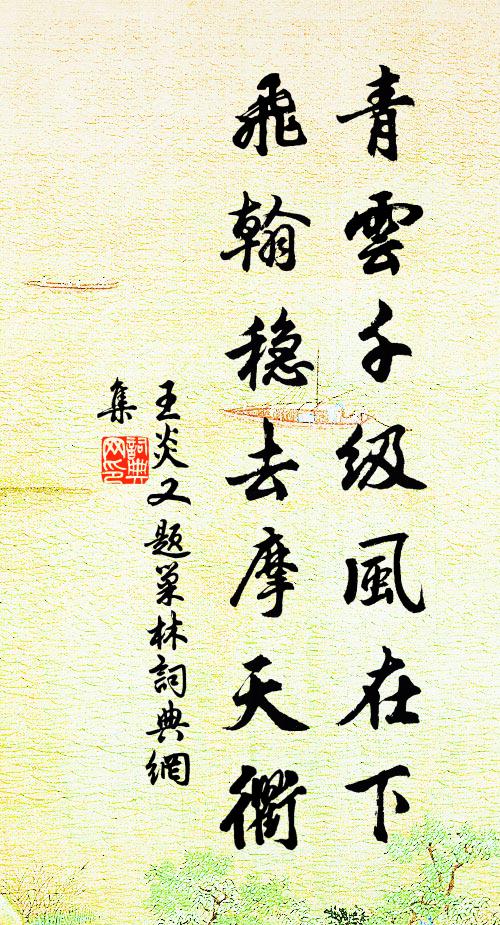 青雲千级風在下
飛翰稳去摩天衢
王炎又题巢林詞典網
集
詞典网印